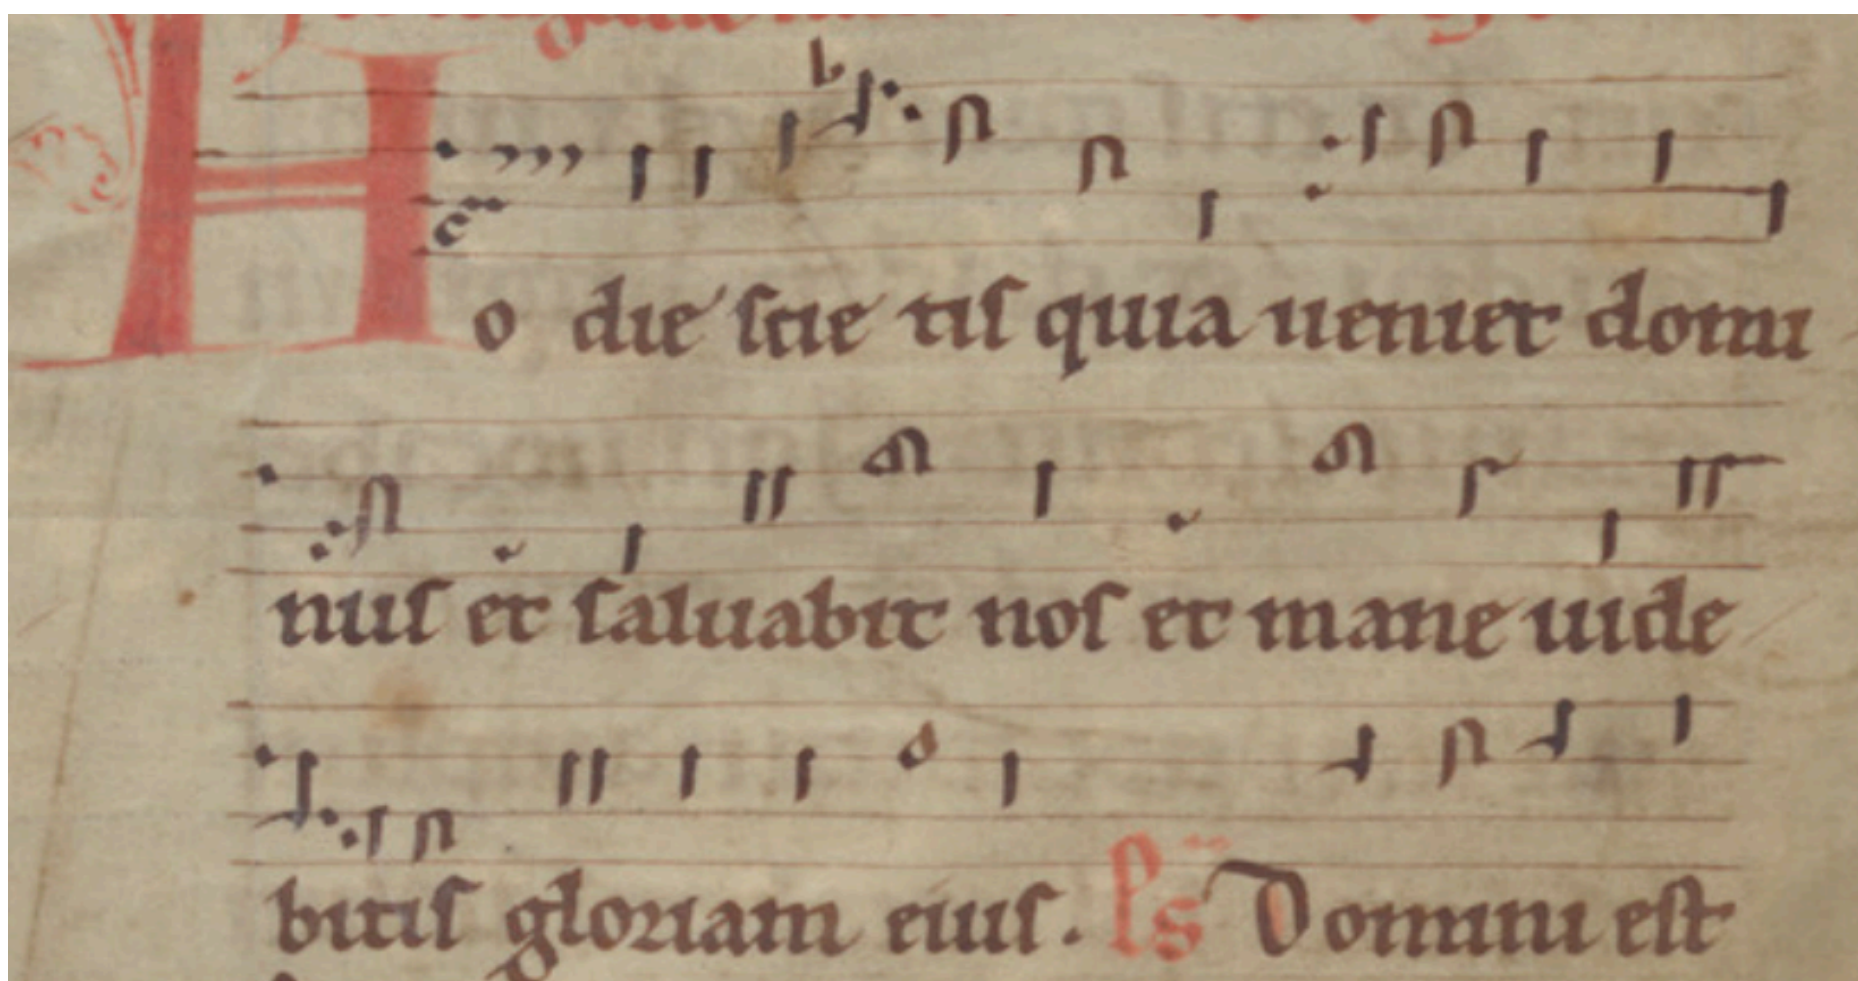 Ho die scie tis quia ueniet domi
nus et saluabit nos et mane uide
bitis gloriam eius. Ps Domini est